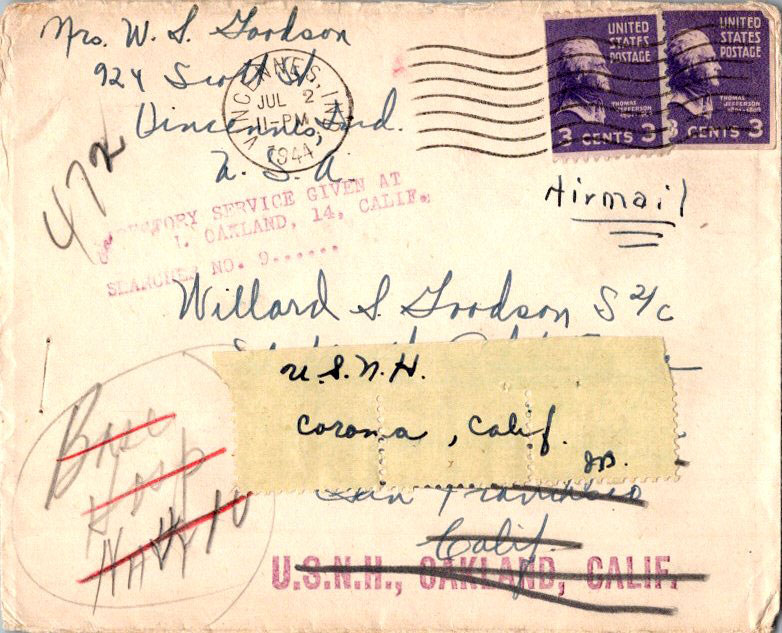 Mrs. W. S. Goodson
924 Scott St.
Vincennes, Ind.
U. S. A.
VINCENNES, IND.
JUL 2
11-PM
1944
UNITED
STATES
POSTAGE
THOMAS
JEFFERSON
3 CENTS 3
UNITED
STATES
POSTAGE
THOMAS
JEFFERSON
3 CENTS 3
Airmail
472
DIRECTORY SERVICE GIVEN AT
1. OAKLAND, 14, CALIF.
SEARCHER NO. 9......
Willard S. Goodson S 2/c
U.S.N.H.
Corona, Calif.
San Francisco
Calif.
U.S.N.H., OAKLAND, CALIF.
Base
Hosp
Navy 10